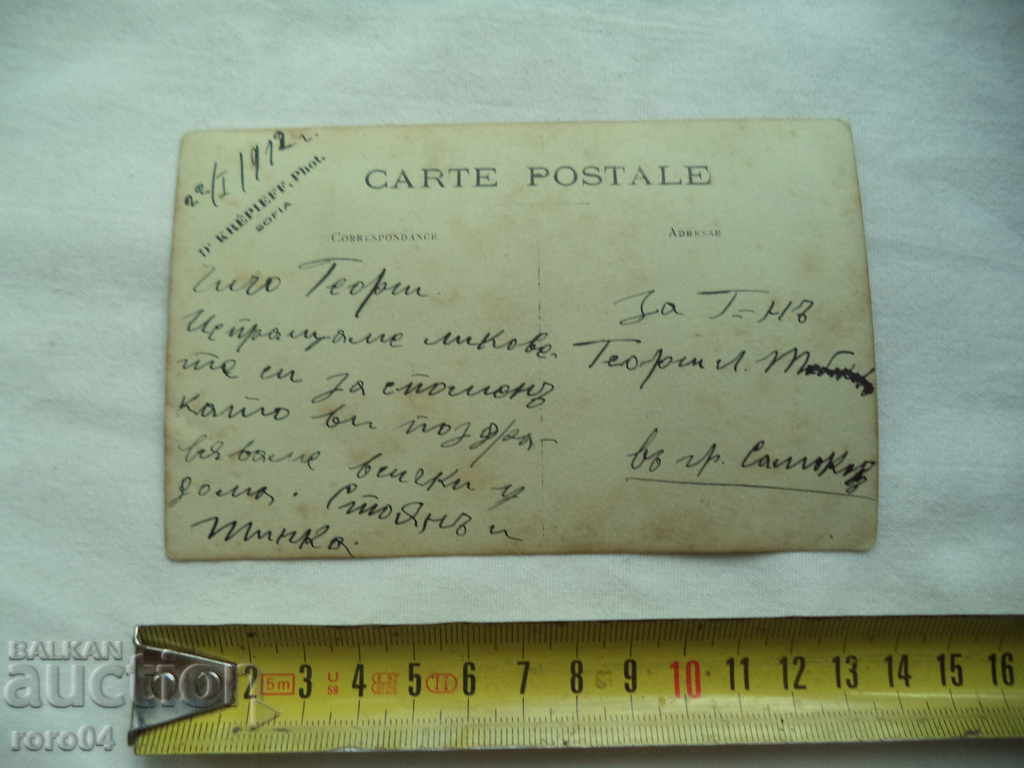 22/I 1912 г.
Dr KRÉPIEFF, Phot.
SOFIA
CARTE POSTALE
CORRESPONDANCE
ADRESSE
Чичо Георги.
Испращаме ликове-
те си за споменъ
като ви поздра-
вяваме всички у
дома. Стоянъ и
Тинка.
За Г=нъ
Георги Л.
въ гр. Самоковъ
2 5m 3 4 5 6 7 8 9 10 11 12 13 14 15 16
BALKAN
auctio
roro04